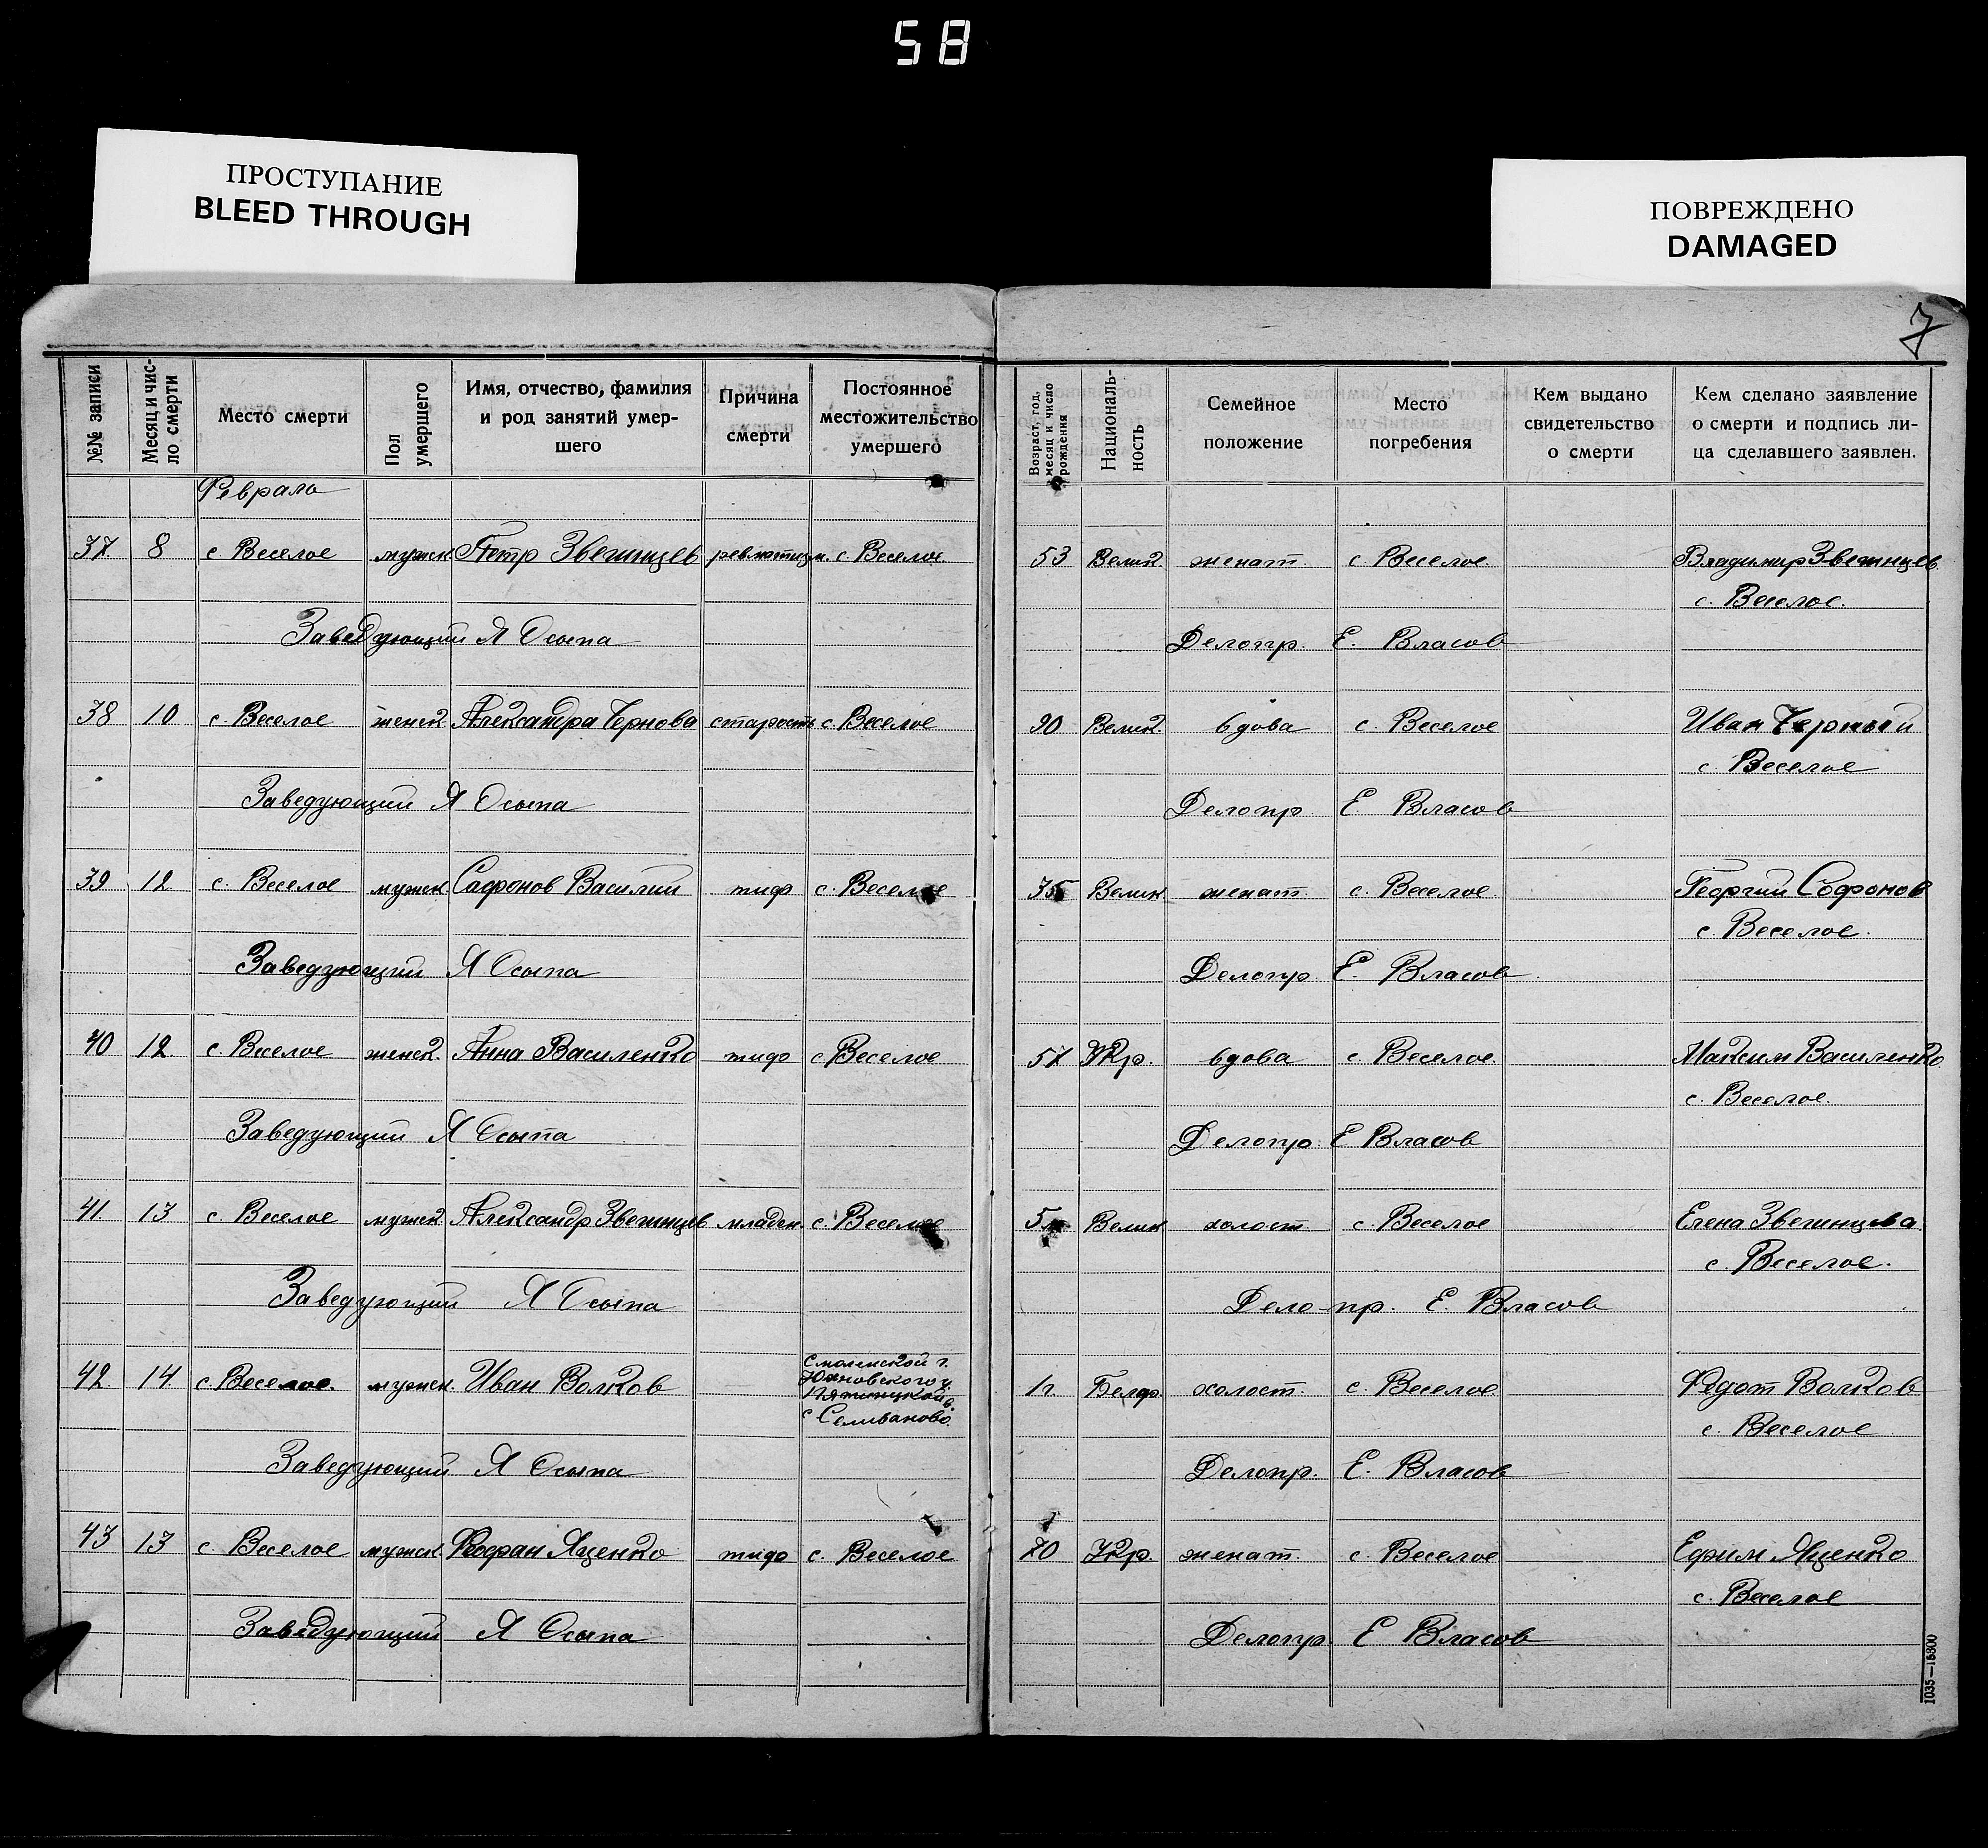 58
ПРОСТУПАНИЕ
BLEED THROUGH
ПОВРЕЖДЕНО
DAMAGED
7
№№ записи
Месяц и чис-
ло смерти
Место смерти
Пол
умершего
Имя, отчество, фамилия
и род занятий умер-
шего
Причина
смерти
Постоянное
местожительство
умершего
Возраст, год,
месяц и число
рождения
Националь-
ность
Семейное
положение
Место
погребения
Кем выдано
свидетельство
о смерти
Кем сделано заявление
о смерти и подпись ли-
ца сделавшего заявлен.
Февраля
37 8 с. Веселое мужск. Петр Звегинцев ревматизм. с. Веселое. 53 Велик. женат. с. Веселое. Владимир Звегинцев.
с. Веселое.
Заведующий Я Осыпа Делопр. Е. Власов
38 10 с. Веселое женск. Александра Чернова старость с. Веселое 90 Велик. вдова с. Веселое Иван Черный
с. Веселое
Заведующий Я Осыпа Делопр. Е. Власов
39 12 с. Веселое мужск. Сафонов Василий тиф с. Веселое 35 Велик. женат. с. Веселое. Георгий Софонов
с. Веселое.
Заведующий Я Осыпа Делопр. Е. Власов.
40 12. с. Веселое женск. Анна Василенко тиф с. Веселое 57 Укр. вдова с. Веселое. Максим Василенко.
с. Веселое.
Заведующий Я Осыпа Делопр. Е Власов
41. 13 с. Веселое мужск. Александр Звегинцев младен. с. Веселое 5м Велик холост с. Веселое Елена Звегинцева.
с. Веселое.
Заведующий Я Осыпа Дело-пр. Е. Власов
Смоленской г.
Юхновского у.
42. 14. с. Веселое. мужск. Иван Волков с Селиваново. 1г. Белор. холост. с. Веселое Федот Волков
с. Веселое
Заведующий Я Осыпа Делопр. Е. Власов
43 13 с. Веселое мужск. Феофан Яценко тиф с. Веселое 70 Укр. женат. с. Веселое Ефим Яценко
с. Веселое
Заведующий Я Осыпа Делопр. Е Власов
1035—15800